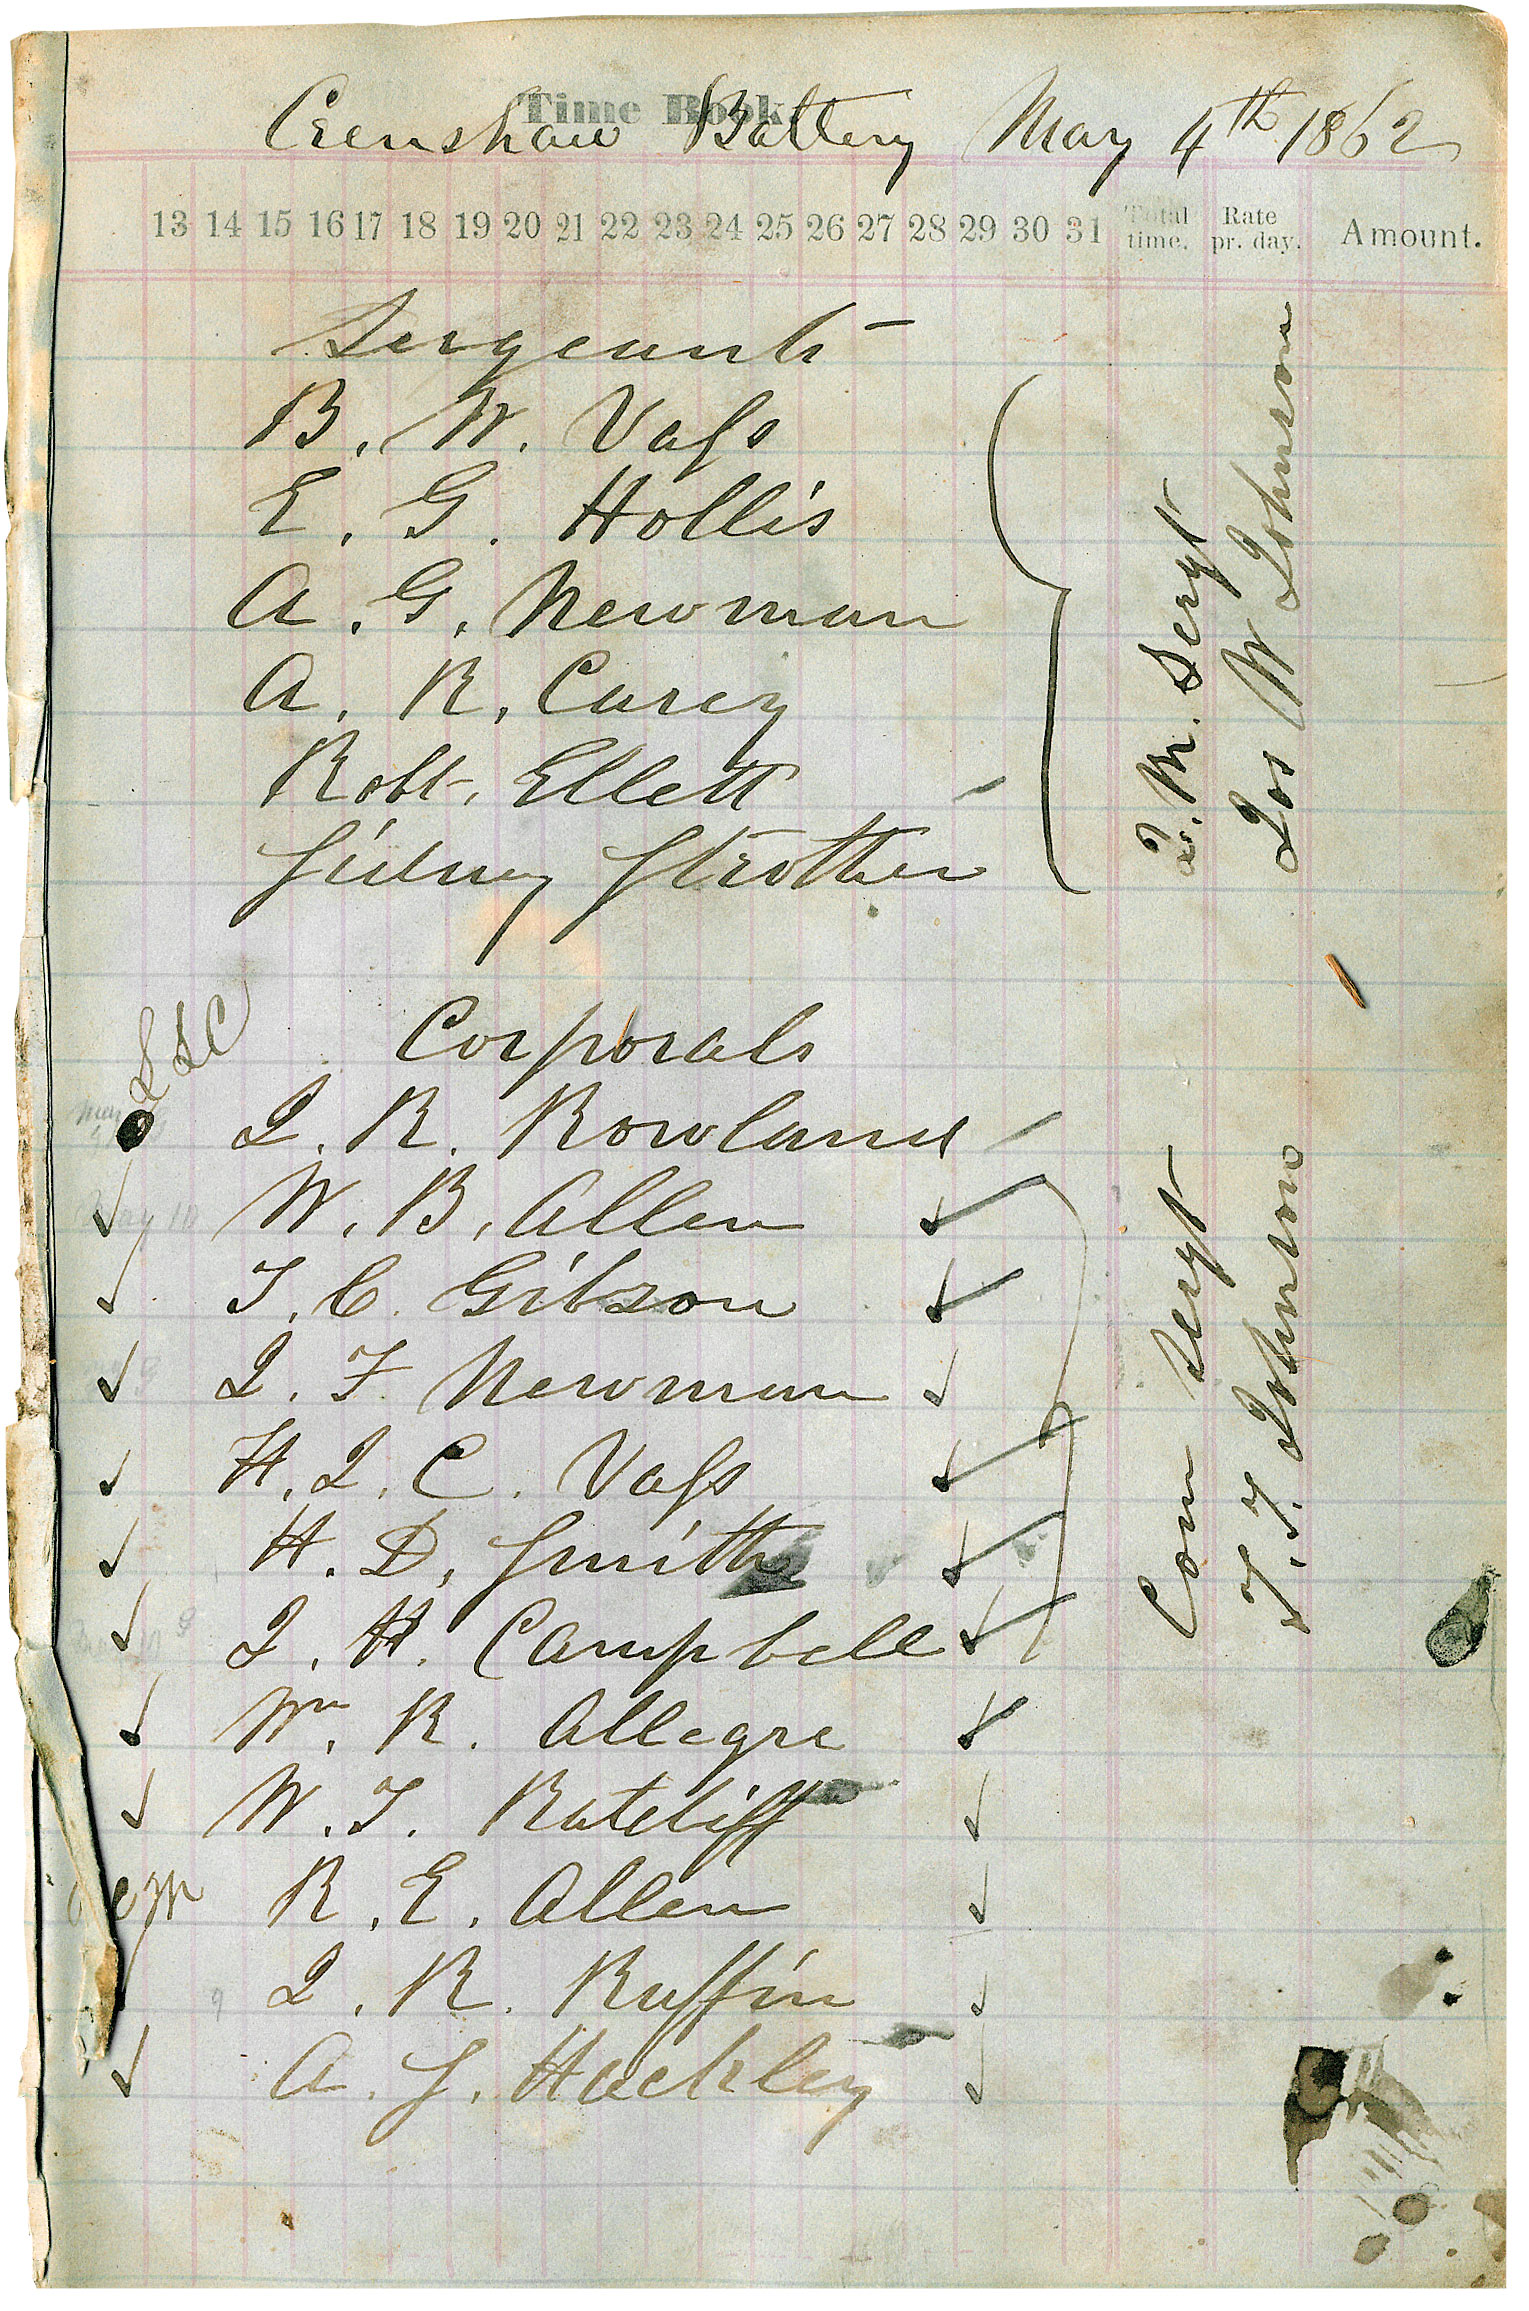 Time Book.
Crenshaw Battery May 4th 1862
13 14 15 16 17 18 19 20 21 22 23 24 25 26 27 28 29 30 31 Total time. Rate pr. day. Amount.
Sergeants
B. W. Vass
E. G. Hollis
A. G. Newman
A. R. Carey
Robt. Ellett
Sidney Strother
Q. M. Sergt
Jos W Johnson
Corporals
J. R. Rowland
W. B. Allen
May 10
T. C. Gibson
J. F. Newman
H. J. C. Vass
H. D. Smith
J. H. Campbell
Wm. R. Allegre
W. T. Ratcliff
R. E. Allen
J. R. Ruffin
9
A. S. Hackley
Com Sergt
T. T. Johnson